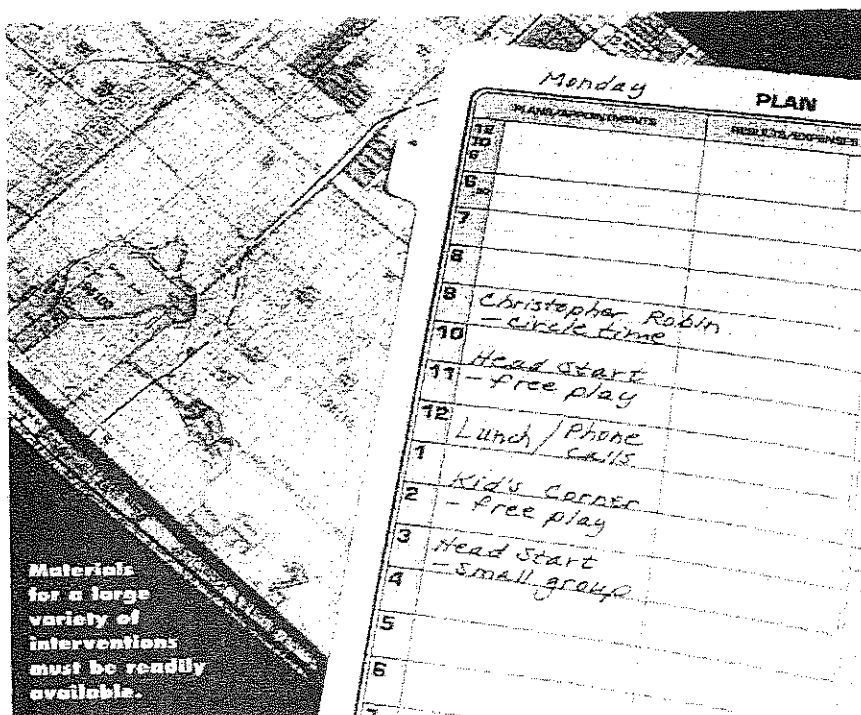 Monday
PLAN
PLANS/APPOINTMENTS
RESULTS/EXPENSES
6
7
8
9 Christopher Robin
- circle time
10
Head Start
11 - free play
12 Lunch / Phone
calls
1
Kid's Corner
2 - free play
3 Head Start
- small group
4
5
6
7
Materials
for a large
variety of
interventions
must be readily
available.